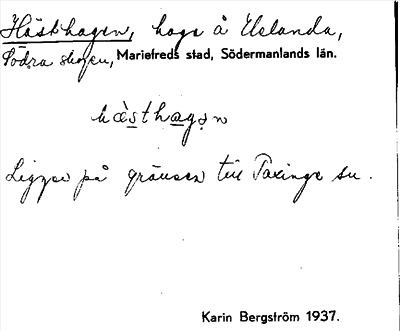 Hästhagen, hage å Uslanda,
Södra skogen, Mariefreds stad, Södermanlands län.
hæ̀sthagən
Ligger på gränsen till Taxinge sn.
Karin Bergström 1937.